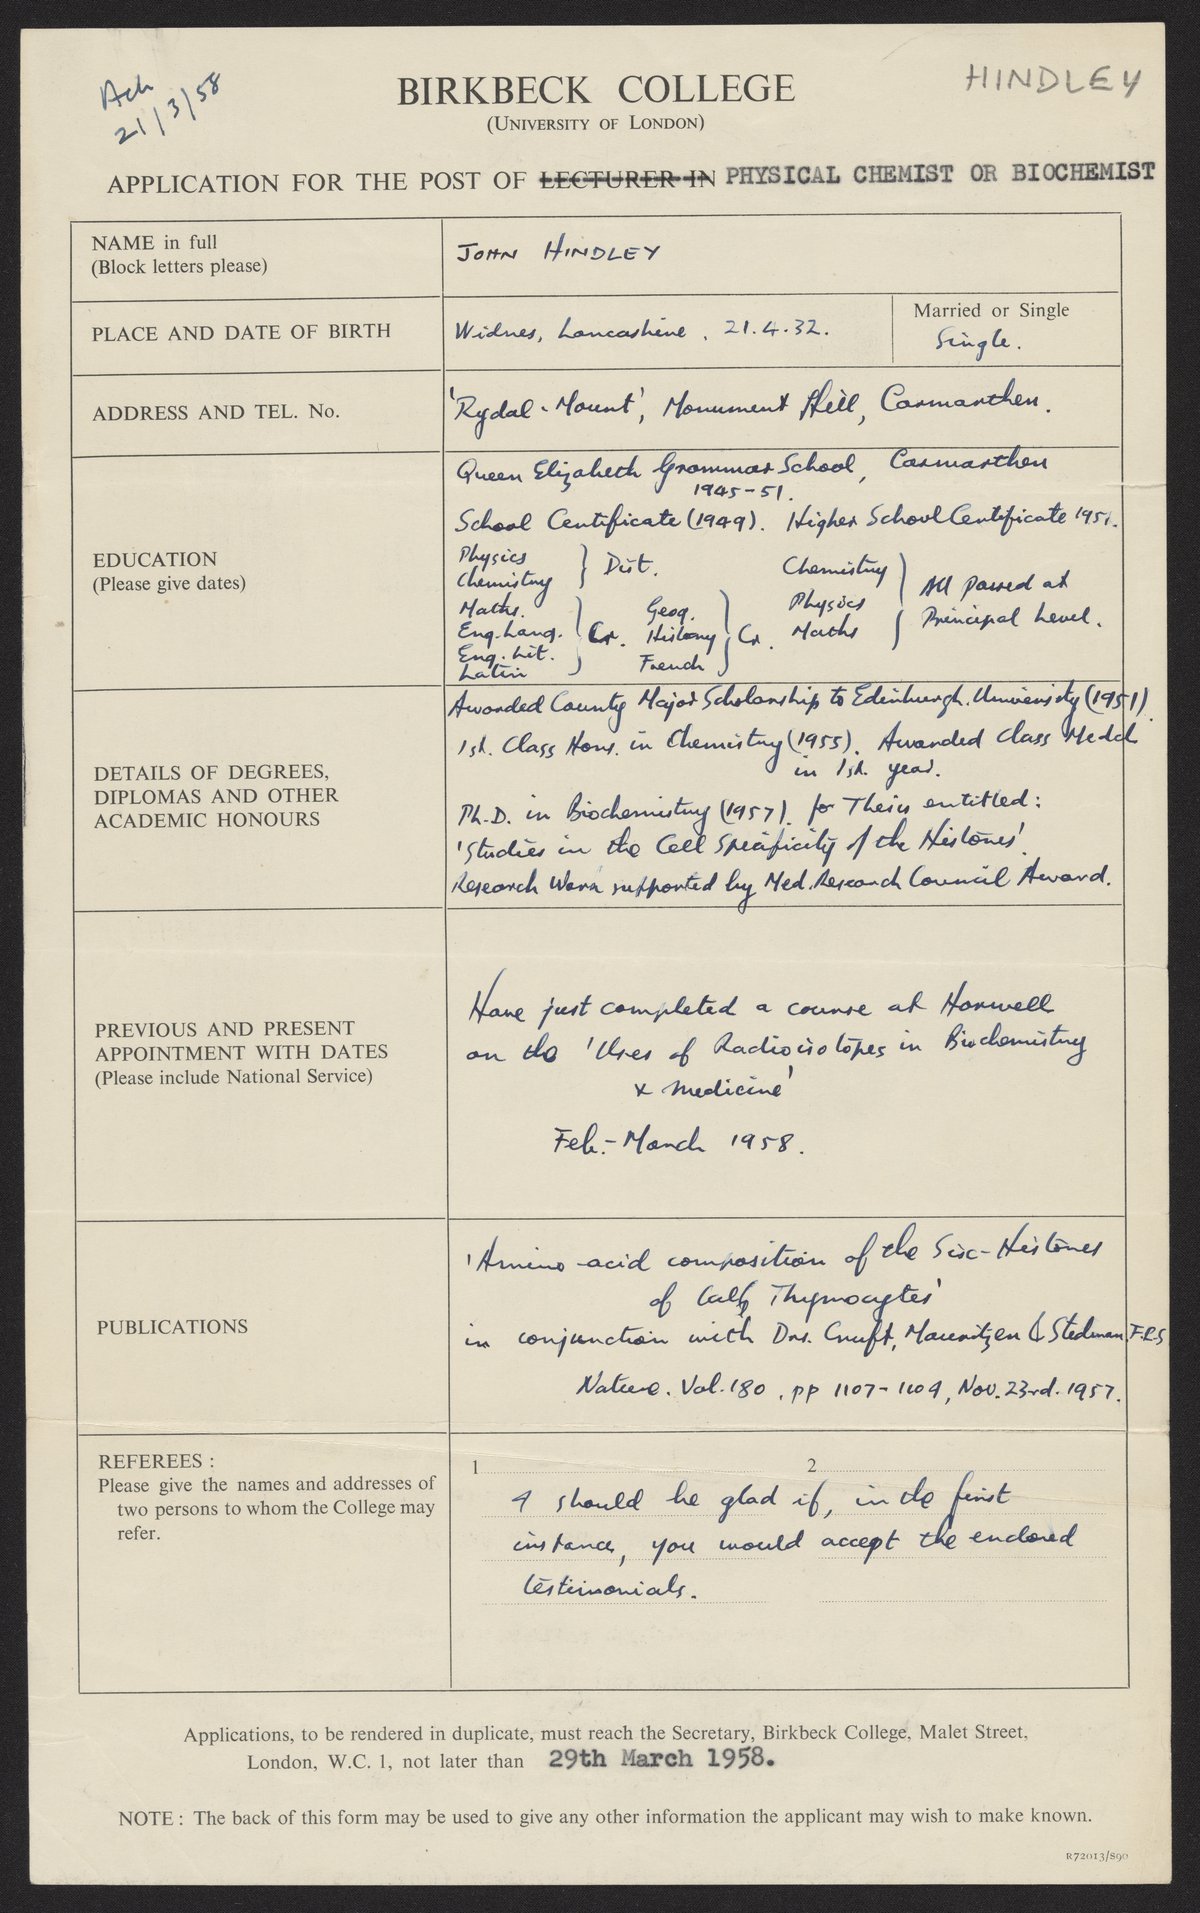 Ack
21/3/58
HINDLEY
BIRKBECK COLLEGE
(UNIVERSITY OF LONDON)
APPLICATION FOR THE POST OF LECTURER IN PHYSICAL CHEMIST OR BIOCHEMIST
NAME in full
(Block letters please)
JOHN HINDLEY
PLACE AND DATE OF BIRTH
Widnes, Lancashire. 21.4.32.
Married or Single
Single.
ADDRESS AND TEL. No.
'Rydal-Mount', Monument Hill, Carmarthen.
EDUCATION
(Please give dates)
Queen Elizabeth Grammar School, Carmarthen
1945-51.
School Certificate (1949). Higher School Certificate 1951.
Physics
Chemistry
} Dist.
Maths.
Eng. Lang.
Eng. Lit.
Latin
} Cr.
Geog.
History
French
} Cr.
Chemistry
Physics
Maths
} All passed at
Principal Level.
DETAILS OF DEGREES,
DIPLOMAS AND OTHER
ACADEMIC HONOURS
Awarded County Major Scholarship to Edinburgh. University (1951).
1st. Class Hons. in Chemistry (1955). Awarded Class Medal
in 1st. year.
Ph.D. in Biochemistry (1957). for Thesis entitled:
'Studies in the Cell Specificity of the Histones'.
Research Work supported by Med. Research Council Award.
PREVIOUS AND PRESENT
APPOINTMENT WITH DATES
(Please include National Service)
Have just completed a course at Harwell
on the 'Uses of Radioisotopes in Biochemistry
& medicine'
Feb.-March 1958.
PUBLICATIONS
'Amino-acid composition of the Six-Histones
of Calf Thymocytes'
in conjunction with Drs. Cruft, Mauritzen & Stedman F.R.S
Nature. Vol. 180, pp 1107-1109, Nov. 23rd. 1957.
REFEREES :
Please give the names and addresses of
two persons to whom the College may
refer.
1
2
I should be glad if, in the first
instance, you would accept the enclosed
testimonials.
Applications, to be rendered in duplicate, must reach the Secretary, Birkbeck College, Malet Street,
London, W.C. 1, not later than 29th March 1958.
NOTE : The back of this form may be used to give any other information the applicant may wish to make known.
R72013/890